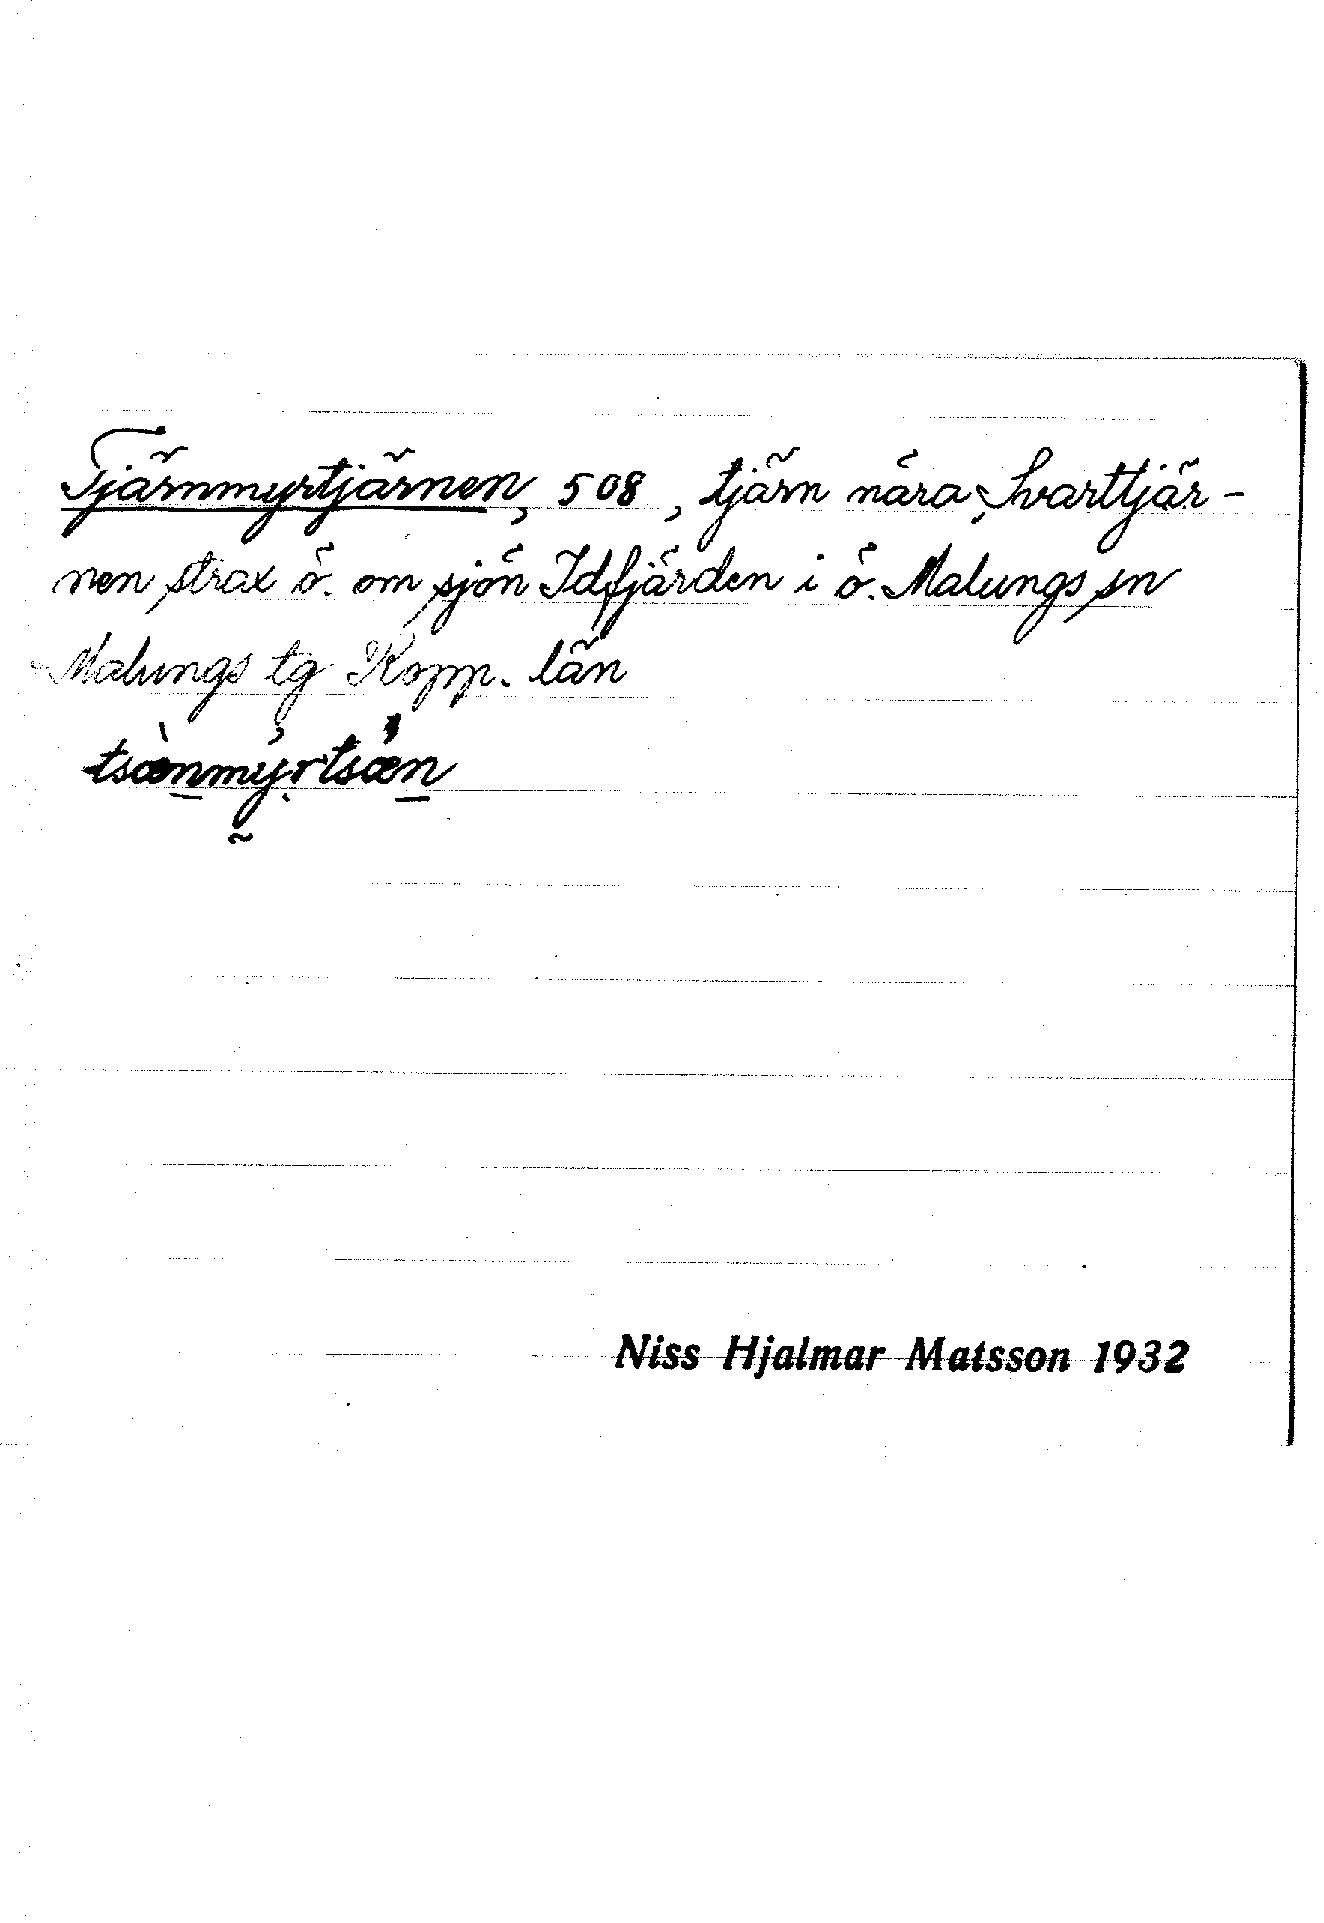 Tjärnmyrtjärnen, 508, tjärn nära Svarttjär-
nen strax ö. om sjön Idfjärden i ö. Malungs sn
Malungs tg Kopp. län
tsæ̀nmyrtsæn
Niss Hjalmar Matsson 1932